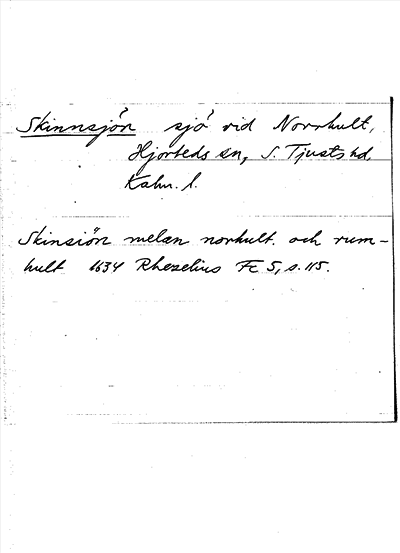 Skinnsjön sjö vid Norrhult,
Hjorteds sn, S. Tjusts hd,
Kalm. l.
Skinsiön melan norhult. och rum-
hult 1634 Rhezelius Fc 5, s. 115.